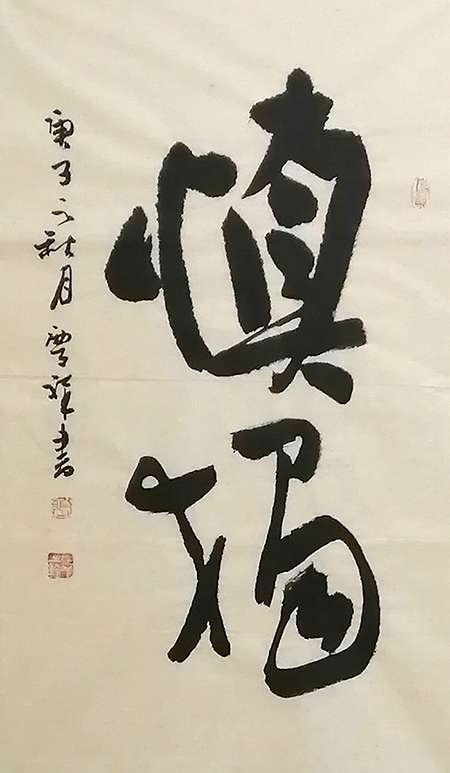 慎獨
庚子之秋月雪祥書